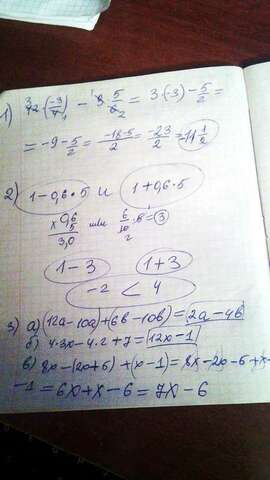 1) 12·(-3/4) - 3·5/6 = 3·(-3) - 5/2 =
= -9 - 5/2 = -18-5/2 = -23/2 = -11 1/2
2) 1-0,6·5 и 1+0,6·5
×0,6 5 3,0 или 6/10·5=3
1-3 1+3
-2 < 4
3) а) (12a-10a)+(6в-10в)=2a-4в
б) 4·3x-4·2+7=12x-1
в) 8x-(2x+5)+(x-1)=8x-2x-5+x-
-1=6x+x-6=7x-6